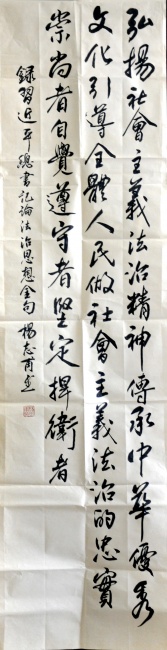 弘揚社會主義法治精神傳承中華優秀
文化引導全體人民做社會主義法治的忠實
崇尚者自覺遵守者堅定捍衛者
録習近平總書記論法治思想金句 楊志